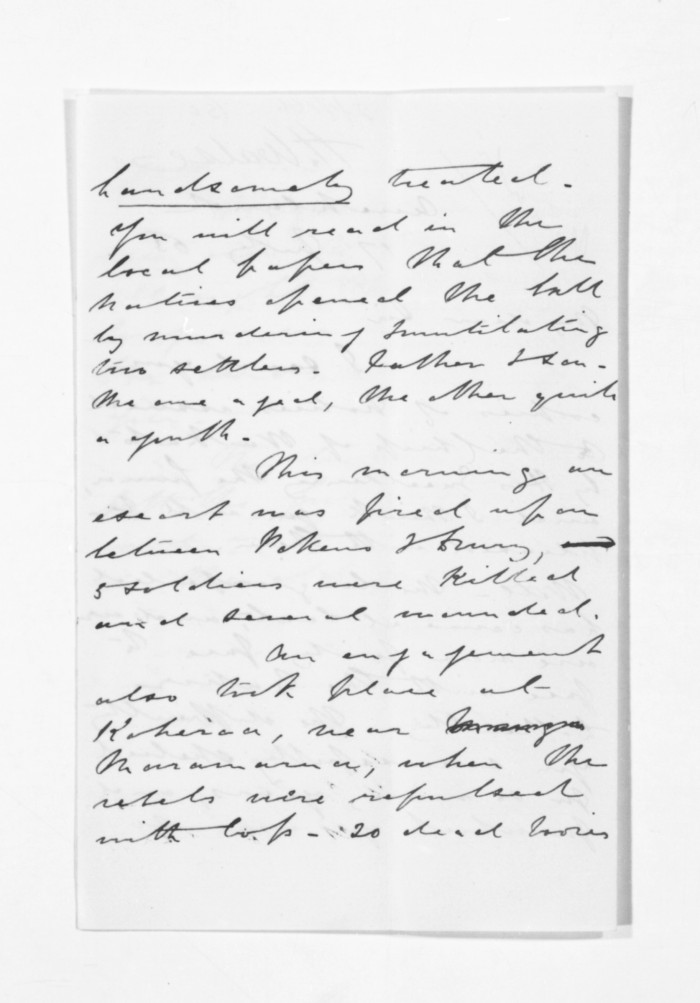 handsomely treated -
You will read in the
local papers that the
natives opened the ball
by murdering & mutilating
two settlers - Father & son -
the one aged, the other quite
a youth -
This morning an
escort was fired upon
between Pokeno & Drury,
5 soldiers were killed
and several wounded.
An engagement
also took place at
Koheroa, near
Maramarua, when the
rebels were repulsed
with loss - 20 dead bodies